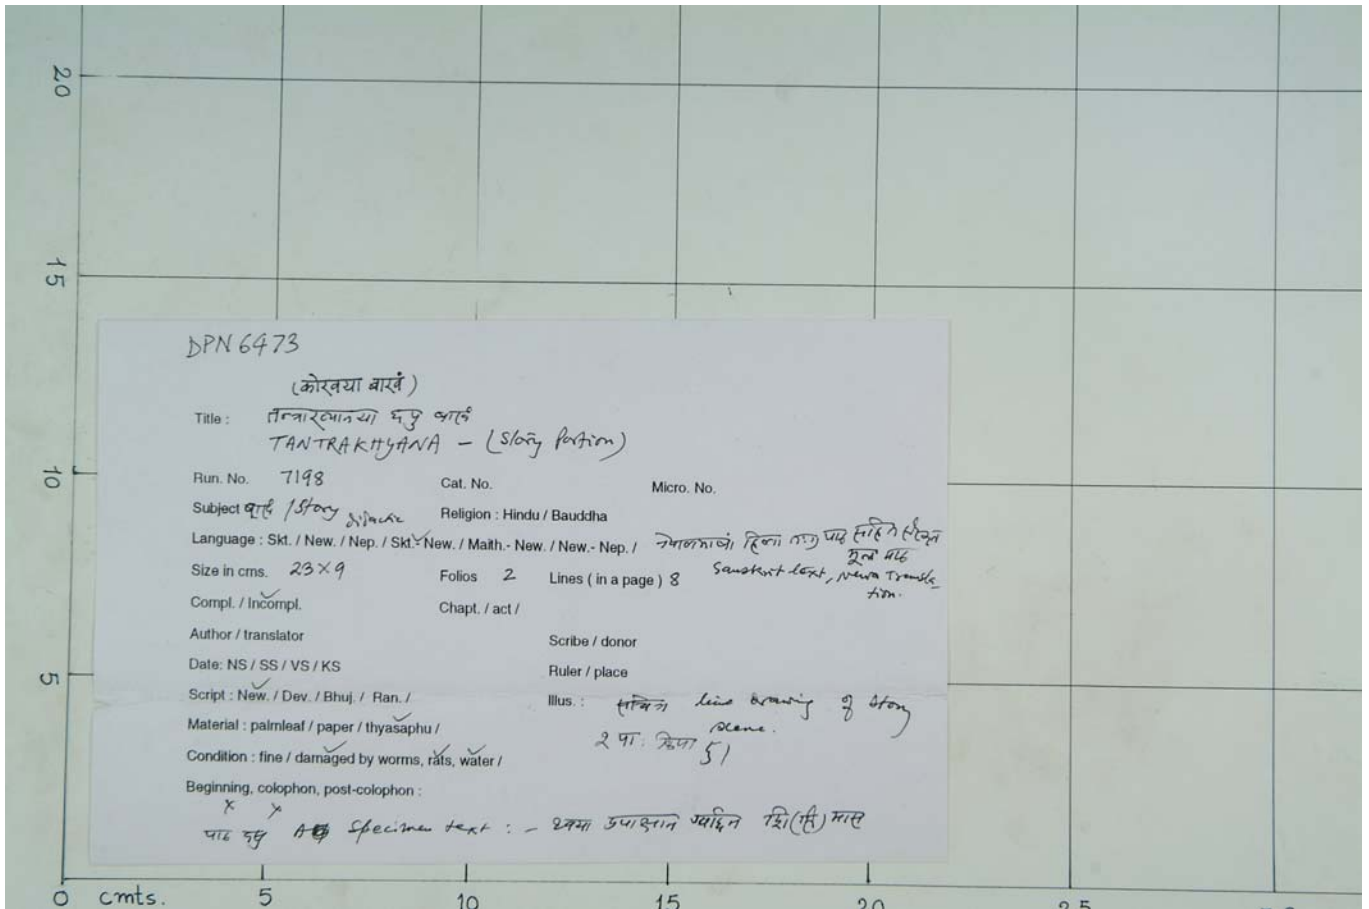 20
15
10
5
DPN 6473
(कोरवया बारवं)
Title : तन्त्राख्यानया
TANTRAKHYANA - (Story Portion)
Run. No. 7198 Cat. No. Micro. No.
Subject बाखं / Story didactic Religion : Hindu / Bauddha
Language : Skt. / New. / Nep. / Skt.- New. / Maith.- New. / New.- Nep. /
मूल पाठ
Sanskrit text, Newa Transla-
tion.
Size in cms. 23 x 9 Folios 2 Lines ( in a page ) 8
Compl. / Incompl. Chapt. / act /
Author / translator Scribe / donor
Date: NS / SS / VS / KS Ruler / place
Script : New. / Dev. / Bhuj. / Ran. / Illus. : सचित्र line drawing of story
scene.
Material : palmleaf / paper / thyasaphu /
२ पा:
Condition : fine / damaged by worms, rats, water /
Beginning, colophon, post-colophon :
x x
Specimen text : -
0 cmts. 5 10 15 20 25